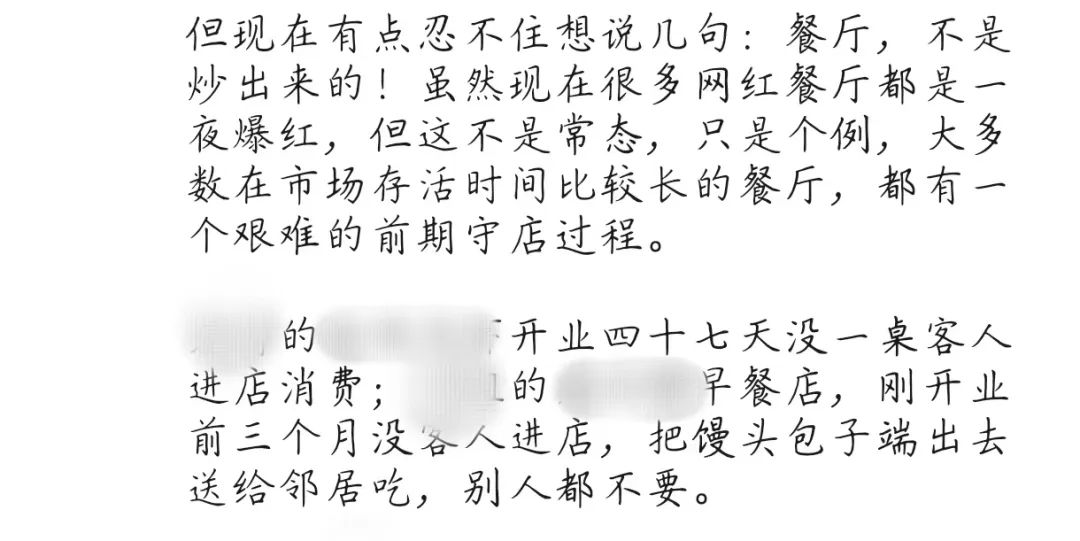 但现在有点忍不住想说几句：餐厅，不是
炒出来的！虽然现在很多网红餐厅都是一
夜爆红，但这不是常态，只是个例，大多
数在市场存活时间比较长的餐厅，都有一
个艰难的前期守店过程。
的 开业四十七天没一桌客人
进店消费； 的 早餐店，刚开业
前三个月没客人进店，把馒头包子端出去
送给邻居吃，别人都不要。